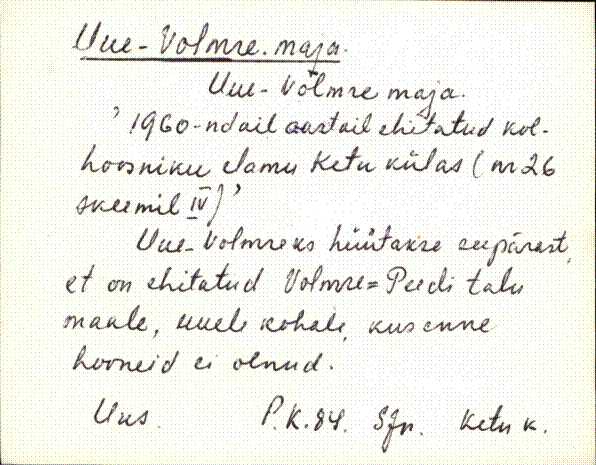 Uue-Volmre. maja.
Uue-Võlmre maja.
’1960-ndail aastail ehitatud kol-
hoosniku elamu Ketu külas (nr 26
skeemil IV)’
Uue-Volmreks hüütakse seepärast,
et on ehitatud Volmre=Peedi talu
maale, uuele kohale, kus enne
hooneid ei olnud.
Uus. P.K.84. Sjn. Ketu k.